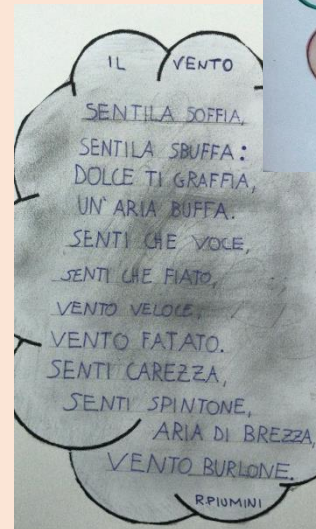 IL VENTO
SENTILA SOFFIA,
SENTILA SBUFFA:
DOLCE TI GRAFFIA,
UN' ARIA BUFFA.
SENTI CHE VOCE,
SENTI CHE FIATO,
VENTO VELOCE,
VENTO FATATO.
SENTI CAREZZA,
SENTI SPINTONE,
ARIA DI BREZZA,
VENTO BURLONE.
R.PIUMINI